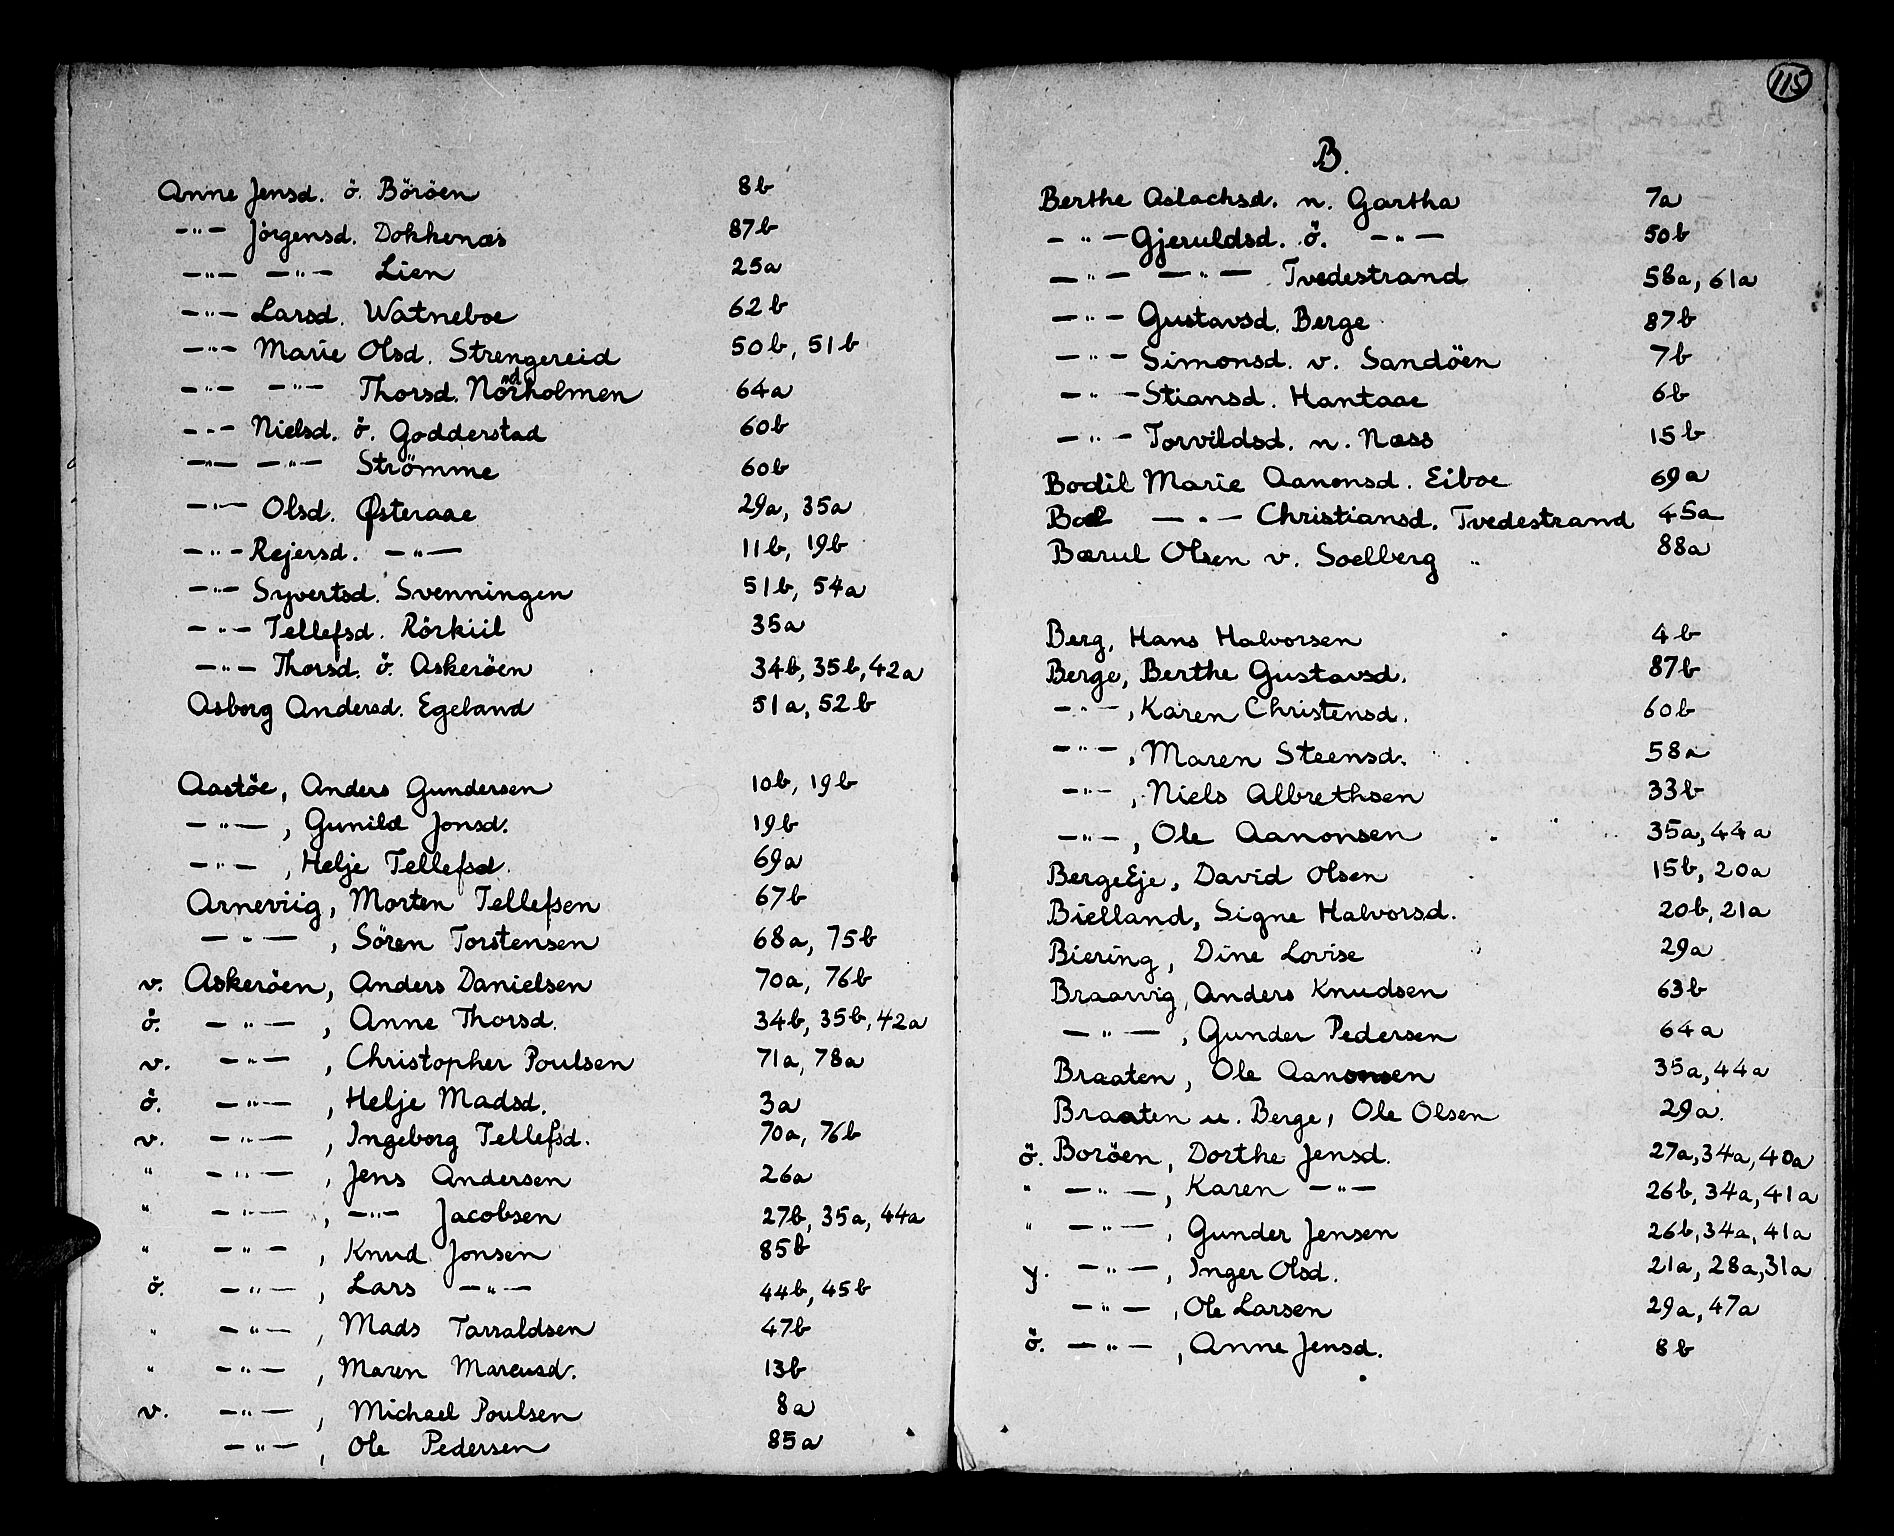 Anne Jensd. ö. Böröen 8b
—"— Jörgensd. Dokkenæs 87b
—"— —"— Lien 25a
—"— Larsd. Watneboe 62b
—"— Marie Olsd. Strengereid 50b, 51b
—"— —"— Thorsd. Nördholmen 64a
—"— Nielsd. ö. Godderstad 60b
—"— —"— Strömme 60b
—"— Olsd. Østeraae 29a, 35a
—"— Rejersd. —"— 11b, 19b
—"— Syvertsd. Svenningen 51b, 54a
—"— Tellefsd. Rörkiil 35a
—"— Thorsd. ö. Askeröen 34b, 35b, 42a
Asborg Andersd. Egeland 51a, 52b
Aastöe, Anders Gundersen 10b, 19b
—"—, Gunild Jonsd. 19b
—"—, Helje Tellefsd. 69a
Arneviig, Morten Tellefsen 67b
—"—, Sören Torstensen 68a, 75b
v. Askeröen, Anders Danielsen 70a, 76b
ö. —"—, Anne Thorsd. 34b, 35b, 42a
v. —"—, Christopher Poulsen 71a, 78a
ö. —"—, Helje Madsd. 3a
v. —"—, Ingeborg Tellefsd. 70a, 76b
" —"—, Jens Andersen 26a
" —"—, —"— Jacobsen 27b, 35a, 44a
" —"—, Knud Jonsen 85b
ö. —"—, Lars —"— 44b, 45b
" —"—, Mads Tarraldsen 47b
" —"—, Maren Marcusd. 13b
v. —"—, Michael Poulsen 8a
—"—, Ole Pedersen 85a
115
B.
Berthe Aslachsd. n. Gartha 7a
—"— Gjeruldsd. ö. —"— 50b
—"— —"— Tvedestrand 58a, 61a
—"— Gustavsd. Berge 87b
—"— Simonsd. v. Sandöen 7b
—"— Stiansd. Hantaae 6b
—"— Torvildsd. n. Næss 15b
Bodil Marie Aanonsd. Eiboe 69a
Boel —"— Christiansd. Tvedestrand 45a
Bærul Olsen v. Soelberg 88a
Berg, Hans Halvorsen 4b
Berge, Berthe Gustavsd. 87b
—"—, Karen Christensd. 60b
—"—, Maren Steensd. 58a
—"—, Niels Albrethsen 33b
—"—, Ole Aanonsen 35a, 44a
BergeEje, David Olsen 15b, 20a
Bielland, Signe Halvorsd. 20b, 21a
Biering, Dine Lovise 29a
Braarvig, Anders Knudsen 63b
—"—, Gunder Pedersen 64a
Braaten, Ole Aanonsen 35a, 44a
Braaten u. Berge, Ole Olsen 29a.
ö. Boröen, Dorthe Jensd. 27a, 34a, 40a
" —"—, Karen —"— 26b, 34a, 41a
" —"—, Gunder Jensen 26b, 34a, 41a
y. —"—, Inger Olsd. 21a, 28a, 31a
—"—, Ole Larsen 29a, 47a
ö. —"—, Anne Jensd. 8b